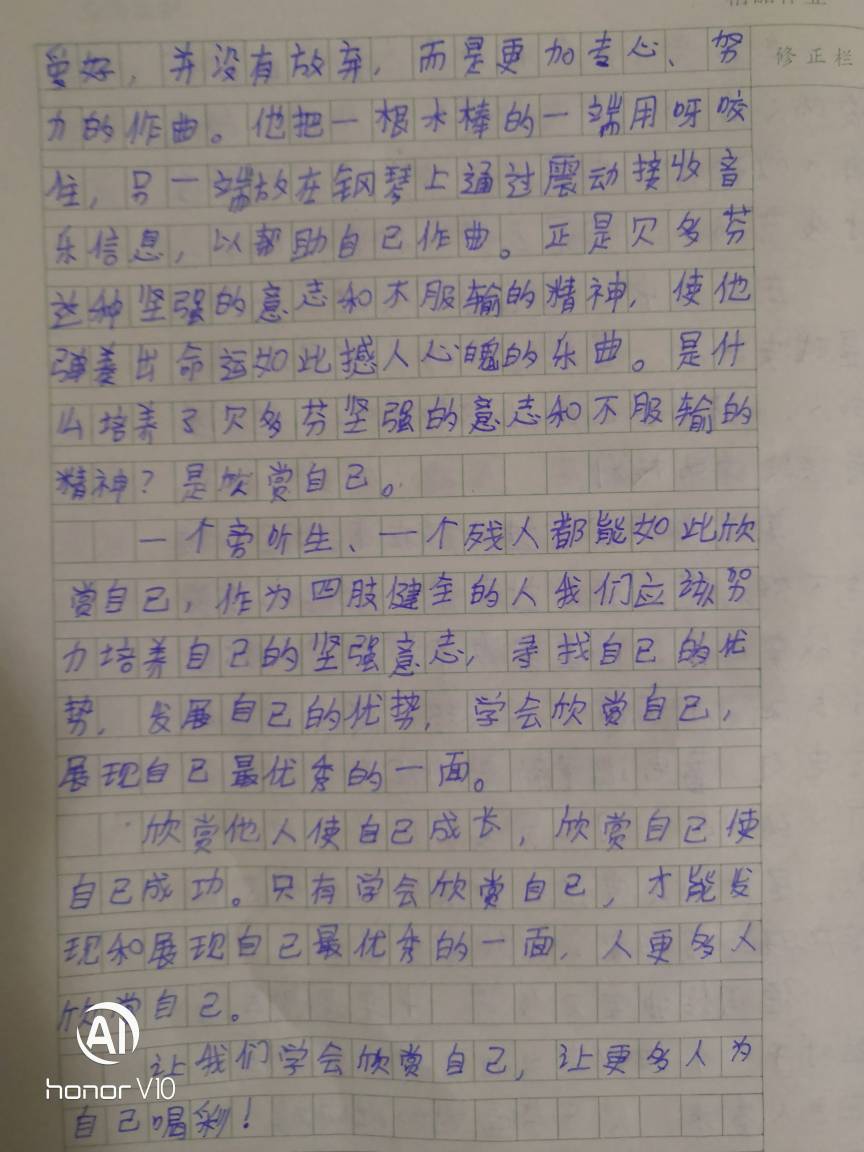 精品作业
修正栏
爱好，并没有放弃，而是更加专心、努
力的作曲。他把一根木棒的一端用呀咬
住，另一端放在钢琴上通过震动接收音
乐信息，以帮助自己作曲。正是贝多芬
这种坚强的意志和不服输的精神，使他
弹奏出命运如此撼人心魄的乐曲。是什
么培养了贝多芬坚强的意志和不服输的
精神？是欣赏自己。
一个旁听生、一个残人都能如此欣
赏自己，作为四肢健全的人我们应该努
力培养自己的坚强意志，寻找自己的优
势，发展自己的优势，学会欣赏自己，
展现自己最优秀的一面。
欣赏他人使自己成长，欣赏自己使
自己成功。只有学会欣赏自己，才能发
现和展现自己最优秀的一面，人更多人
欣赏自己。
让我们学会欣赏自己，让更多人为
自己喝彩！
AI
honor V10